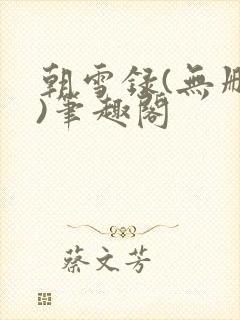 朝雪録(無
)筆趣閣
蔡文芳